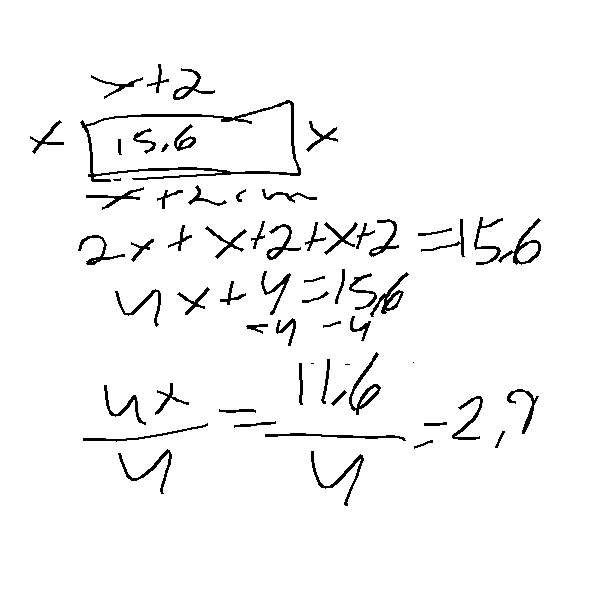 x+2
x 15.6 x
x+2cm
2x+x+2+x+2=15.6
4x+4=15.6
-4 -4
4x/4=11.6/4=2.9